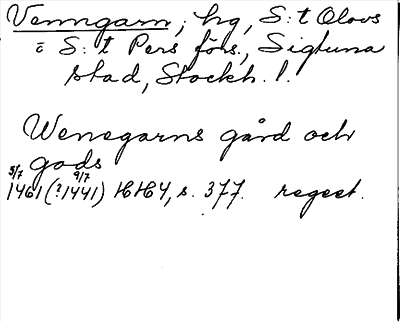 Venngarn, hg, S:t Olovs
o S:t Pers förs., Sigtuna
stad, Stockh. l.
Wenegarns gård och
gods
5/7 9/7
1461 (?1441) HH4, s. 377. regest.